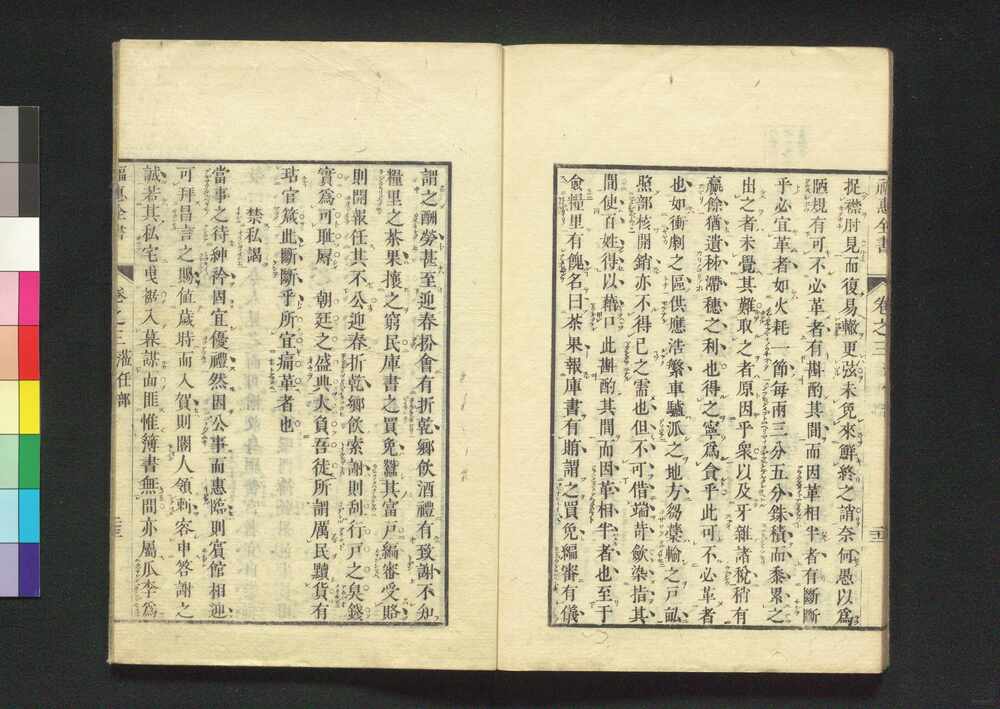 福惠全書 卷之三
捉襟肘見而復易轍更弦未免來鮮終之誚奈何愚以爲
陋規有可不必革者有斟酌其間而因革相半者有斷斷
乎必宜革者如火耗一節每兩三分五分銖積而黍累之
出之者未覺其難取之者原因乎衆以及牙雜諸稅稍有
贏餘猶遺秭滯穗之利也得之寧爲貪乎此可不必革者
也如衝劇之區供應浩繁車驢派之地方芻槀輸之戶畝
照部核開銷亦不得已之需也但不可借端苛歛染指其
間使百姓得以藉口此斟酌其間而因革相半者也至于
僉糧里有餽名曰茶果報庫書有賄謂之買免編審有儀
謂之酬勞甚至迎春扮會有折乾鄉飲酒禮有致謝不知
糧里之茶果攘之窮民庫書之買免蠧其富戶編審受賂
則開報任其不公迎春折乾鄉飲索謝則刮行戶之㬰錢
實爲可耻屠 朝廷之盛典大負吾徒所謂厲民黷貨有
玷官箴此斷斷乎所宜痛革者也
禁私謁
當事之待紳衿固宜優禮然因公事而惠臨則賓館相迎
可拜昌言之賜值歲時而入賀則閽人領刺容申答謝之
誠若其私宅曳裾入幕謀面匪惟簿書無間亦屬瓜李爲
福惠全書 卷之三 蒞任部